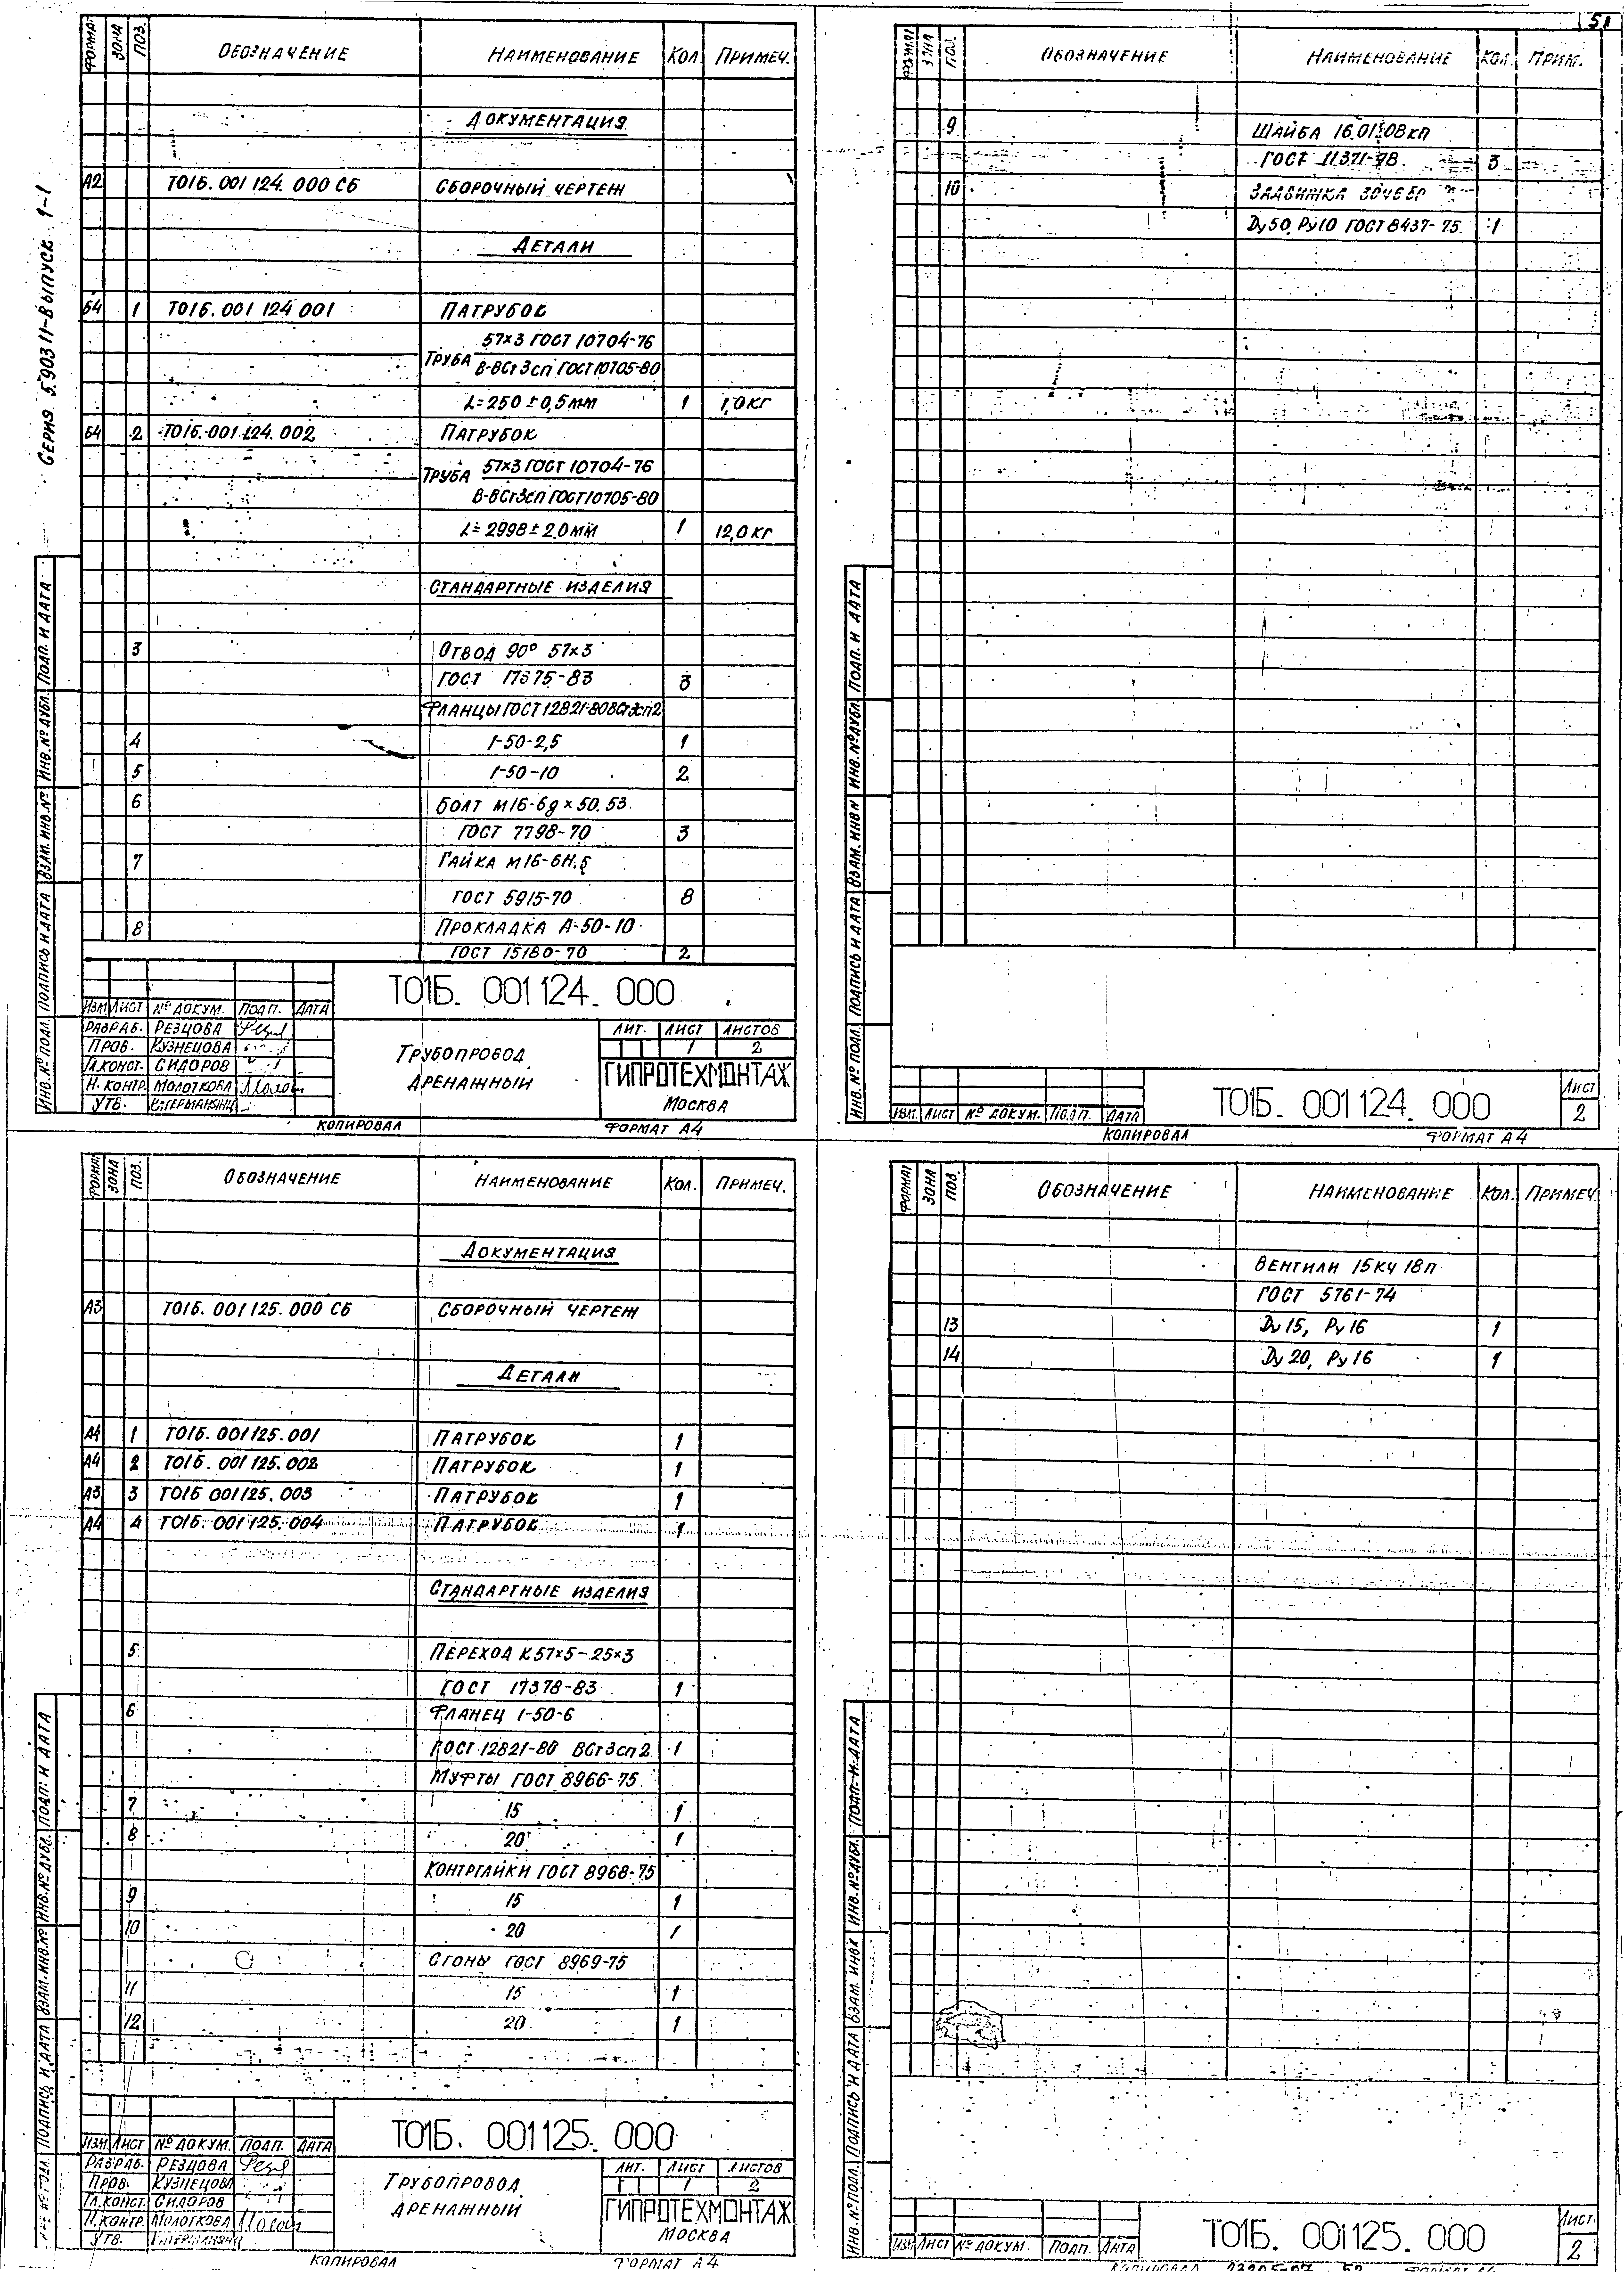 51
Серия 5.903 11-Выпуск 1-1
ФОРМАТ ЗОНА ПОЗ. ОБОЗНАЧЕНИЕ НАИМЕНОВАНИЕ КОЛ. ПРИМЕЧ.
ДОКУМЕНТАЦИЯ
А2 Т01Б. 001 124. 000 СБ СБОРОЧНЫЙ ЧЕРТЕЖ
ДЕТАЛИ
Б4 1 Т01Б. 001 124 001 ПАТРУБОК
57×3 ГОСТ 10704-76
ТРУБА В-ВСт3сп ГОСТ 10705-80
L=250 ± 0,5 мм 1 1,0 кг
Б4 2 Т01Б. 001 124. 002 ПАТРУБОК
ТРУБА 57×3 ГОСТ 10704-76
В-ВСт3сп ГОСТ 10705-80
L= 2998 ± 2,0 мм 1 12,0 кг
СТАНДАРТНЫЕ ИЗДЕЛИЯ
3 ОТВОД 90° 57×3
ГОСТ 17375-83 3
ФЛАНЦЫ ГОСТ 12821-80 ВСт3сп2
4 1-50-2,5 1
5 1-50-10 2
6 БОЛТ М16-6g × 50. 53.
ГОСТ 7798-70 3
7 ГАЙКА М16-6Н. 5
ГОСТ 5915-70 8
8 ПРОКЛАДКА А-50-10
ГОСТ 15180-70 2
Т01Б. 001 124. 000
ИЗМ ЛИСТ № ДОКУМ. ПОДП. ДАТА
РАЗРАБ. РЕЗЦОВА
ПРОВ. КУЗНЕЦОВА
ГЛ.КОНСТ. СИДОРОВ
Н. КОНТР. МОЛОТКОВА
УТВ.
ТРУБОПРОВОД
ДРЕНАЖНЫЙ
ЛИТ. ЛИСТ ЛИСТОВ
1 2
ГИПРОТЕХМОНТАЖ
МОСКВА
КОПИРОВАЛ ФОРМАТ А4
ИНВ. № ПОДЛ. ПОДПИСЬ И ДАТА ВЗАМ. ИНВ. № ИНВ. № ДУБЛ. ПОДП. И ДАТА
ФОРМАТ ЗОНА ПОЗ. ОБОЗНАЧЕНИЕ НАИМЕНОВАНИЕ КОЛ. ПРИМ.
9 ШАЙБА 16.01.08кп
ГОСТ 11371-78 3
10 ЗАДВИЖКА 30ч6бр
Ду 50, Ру 10 ГОСТ 8437-75 1
ИНВ. № ПОДЛ. ПОДПИСЬ И ДАТА ВЗАМ. ИНВ № ИНВ. № ДУБЛ. ПОДП. И ДАТА
ИЗМ. ЛИСТ № ДОКУМ. ПОДП. ДАТА
Т01Б. 001 124. 000
ЛИСТ
2
КОПИРОВАЛ ФОРМАТ А4
ФОРМАТ ЗОНА ПОЗ. ОБОЗНАЧЕНИЕ НАИМЕНОВАНИЕ КОЛ. ПРИМЕЧ.
ДОКУМЕНТАЦИЯ
А3 Т01Б. 001 125. 000 СБ СБОРОЧНЫЙ ЧЕРТЕЖ
ДЕТАЛИ
А4 1 Т01Б. 001 125. 001 ПАТРУБОК 1
А4 2 Т01Б. 001 125. 002 ПАТРУБОК 1
А3 3 Т01Б 001 125. 003 ПАТРУБОК 1
А4 4 Т01Б. 001 125. 004 ПАТРУБОК 1
СТАНДАРТНЫЕ ИЗДЕЛИЯ
5 ПЕРЕХОД К 57×5 - 25×3
ГОСТ 17378-83 1
6 ФЛАНЕЦ 1-50-6
ГОСТ 12821-80 ВСт3сп2 1
МУФТЫ ГОСТ 8966-75
7 15 1
8 20 1
КОНТРГАЙКИ ГОСТ 8968-75
9 15 1
10 20 1
СГОНЫ ГОСТ 8969-75
11 15 1
12 20 1
Т01Б. 001 125. 000
ИЗМ ЛИСТ № ДОКУМ. ПОДП. ДАТА
РАЗРАБ. РЕЗЦОВА
ПРОВ. КУЗНЕЦОВА
ГЛ.КОНСТ. СИДОРОВ
Н. КОНТР. МОЛОТКОВА
УТВ.
ТРУБОПРОВОД
ДРЕНАЖНЫЙ
ЛИТ. ЛИСТ ЛИСТОВ
1 2
ГИПРОТЕХМОНТАЖ
МОСКВА
КОПИРОВАЛ ФОРМАТ А4
ПОДПИСЬ И ДАТА ВЗАМ. ИНВ. № ИНВ. № ДУБЛ. ПОДП. И ДАТА
ФОРМАТ ЗОНА ПОЗ. ОБОЗНАЧЕНИЕ НАИМЕНОВАНИЕ КОЛ. ПРИМЕЧ.
ВЕНТИЛИ 15кч 18п
ГОСТ 5761-74
13 Ду 15, Ру 16 1
14 Ду 20, Ру 16 1
ИНВ. № ПОДЛ. ПОДПИСЬ И ДАТА ВЗАМ. ИНВ № ИНВ. № ДУБЛ. ПОДП. И ДАТА
ИЗМ ЛИСТ № ДОКУМ. ПОДП. ДАТА
Т01Б. 001 125. 000
ЛИСТ
2